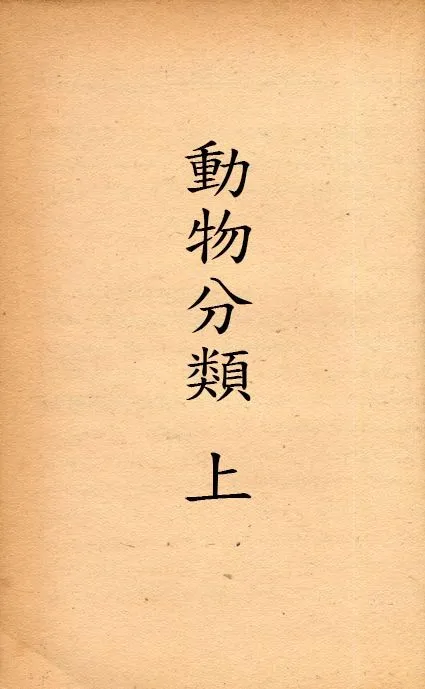 動物分類 上